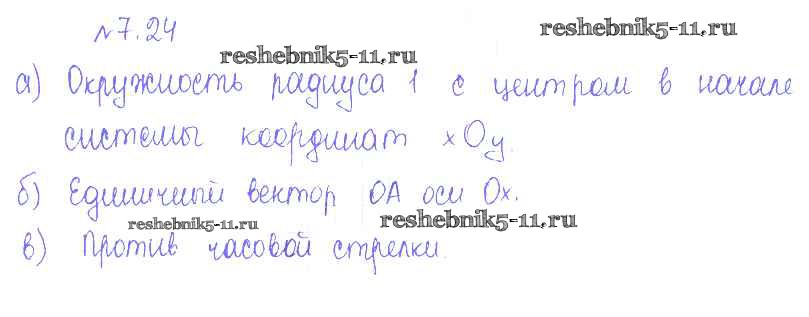 №7.24
reshebnik5-11.ru
reshebnik5-11.ru
а) Окружность радиуса 1 с центром в начале
системы координат xOy.
б) Единичный вектор OA оси Ox.
reshebnik5-11.ru
reshebnik5-11.ru
в) Против часовой стрелки.